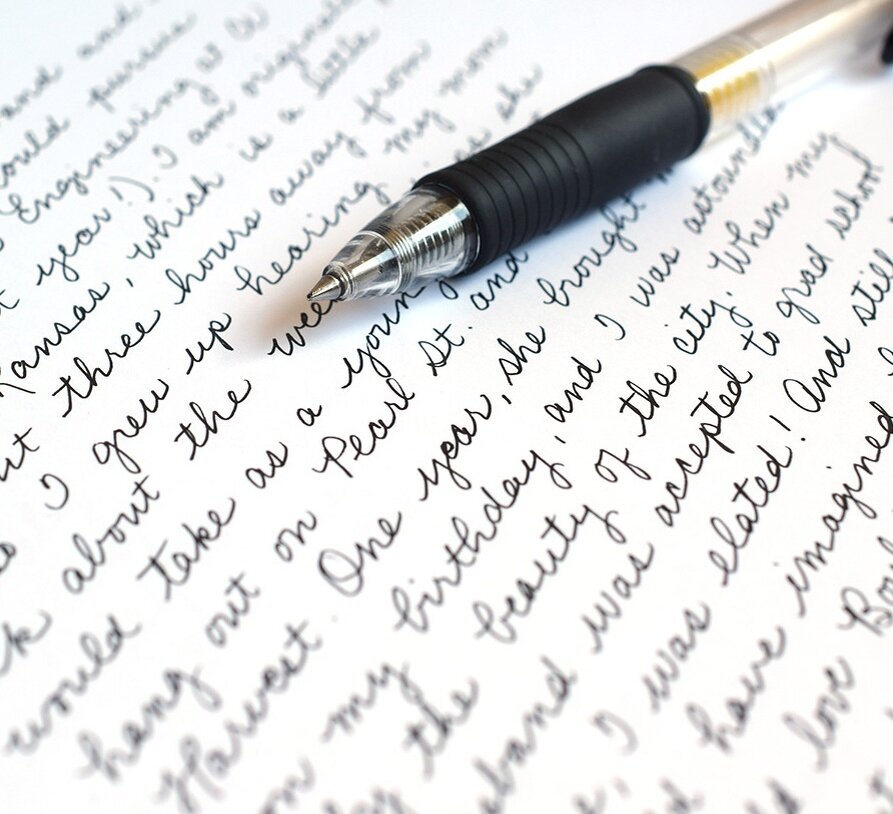 and and
could pursue
Engineering at CU
year!). I am originally
Kansas, which is a little
three hours away from
I grew up hearing my mom
about the she
would take as a young
hang out on Pearl St. and
Harvest. One year, she brought
on my birthday, and I was
by the beauty of the city. When my
sband was accepted to grad school
I was elated! And still
have imagined
love Boul